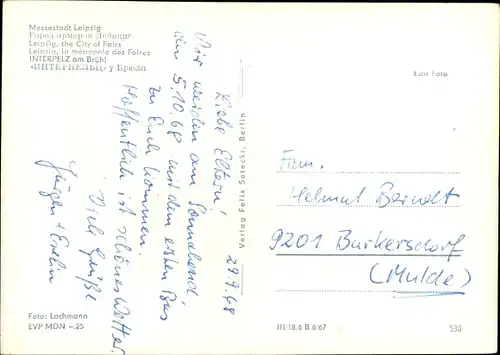 Messestadt Leipzig
Город ярмарок Лейпциг
Leipzig, the City of Fairs
Leipzig, la métropole des Foires
INTERPELZ am Brühl
«ИНТЕРПЕЛЬЦ» у Брюля
Echt Foto
29.9.68
Liebe Eltern!
Wir werden am Sonnabend,
den 5.10.68 mit dem ersten Bus
zu Euch kommen.
Hoffentlich ist schönes Wetter.
Viele Grüße
Jürgen + Evelin
Verlag Felix Setecki, Berlin
Fam.
Helmut Berndt
9201 Burkersdorf
(Mulde)
Foto: Lachmann
EVP MDN -.25
III/18.6 B 6/67
530